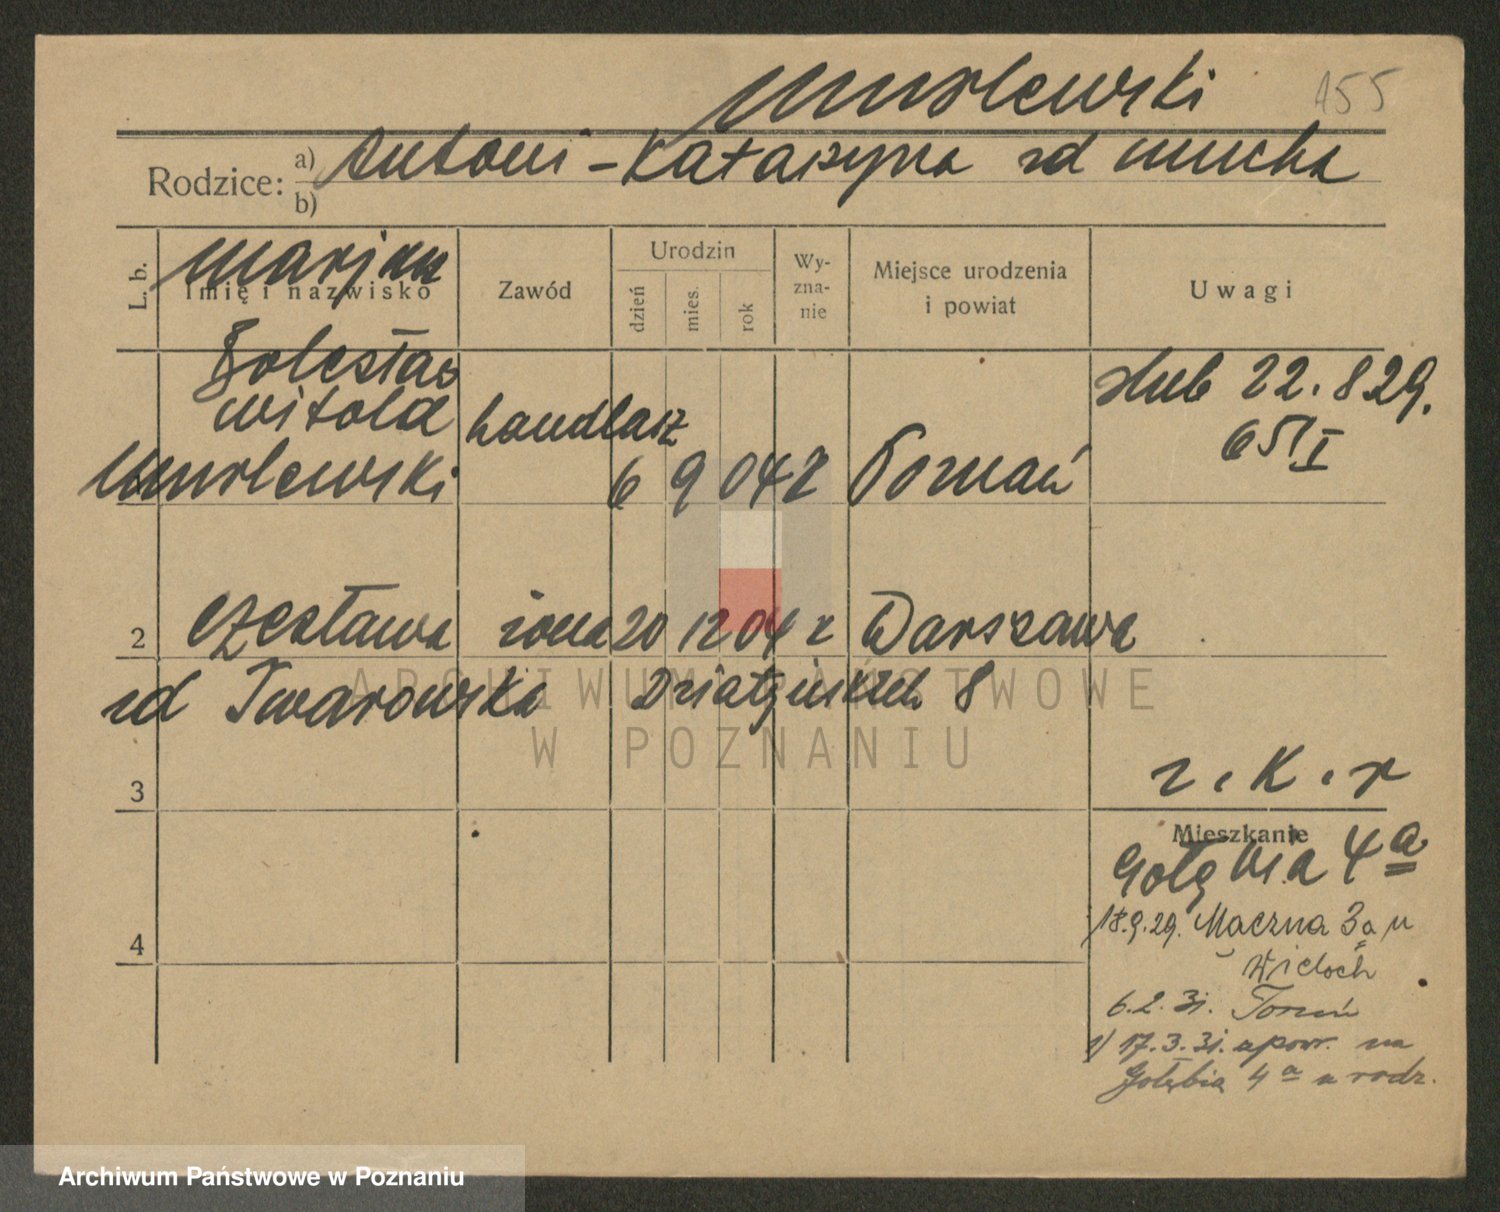 Muslewski 155
Rodzice: a) Antoni - Katarzyna zd Mucha
b)
L. b. Imię i nazwisko Zawód Urodzin dzień mies. rok Wy-zna-nie Miejsce urodzenia i powiat Uwagi
Marjan
Bolesław
Witold handlarz
Muslewski 6 9 04 r Poznań
ślub 22.8 29.
651 I
2 Czesława żona 20 12 04 r Warszawa
zd Twarowska Działyńskich 8
3 r. k. r
Mieszkanie
Gołębia 4a
18.9.29. Maczna 3a u
Wieloch
6.2.31. Toruń
17.3.31. spowr. na
Gołębia 4a u rodz.
4
ARCHIWUM PAŃSTWOWE
W POZNANIU
Archiwum Państwowe w Poznaniu